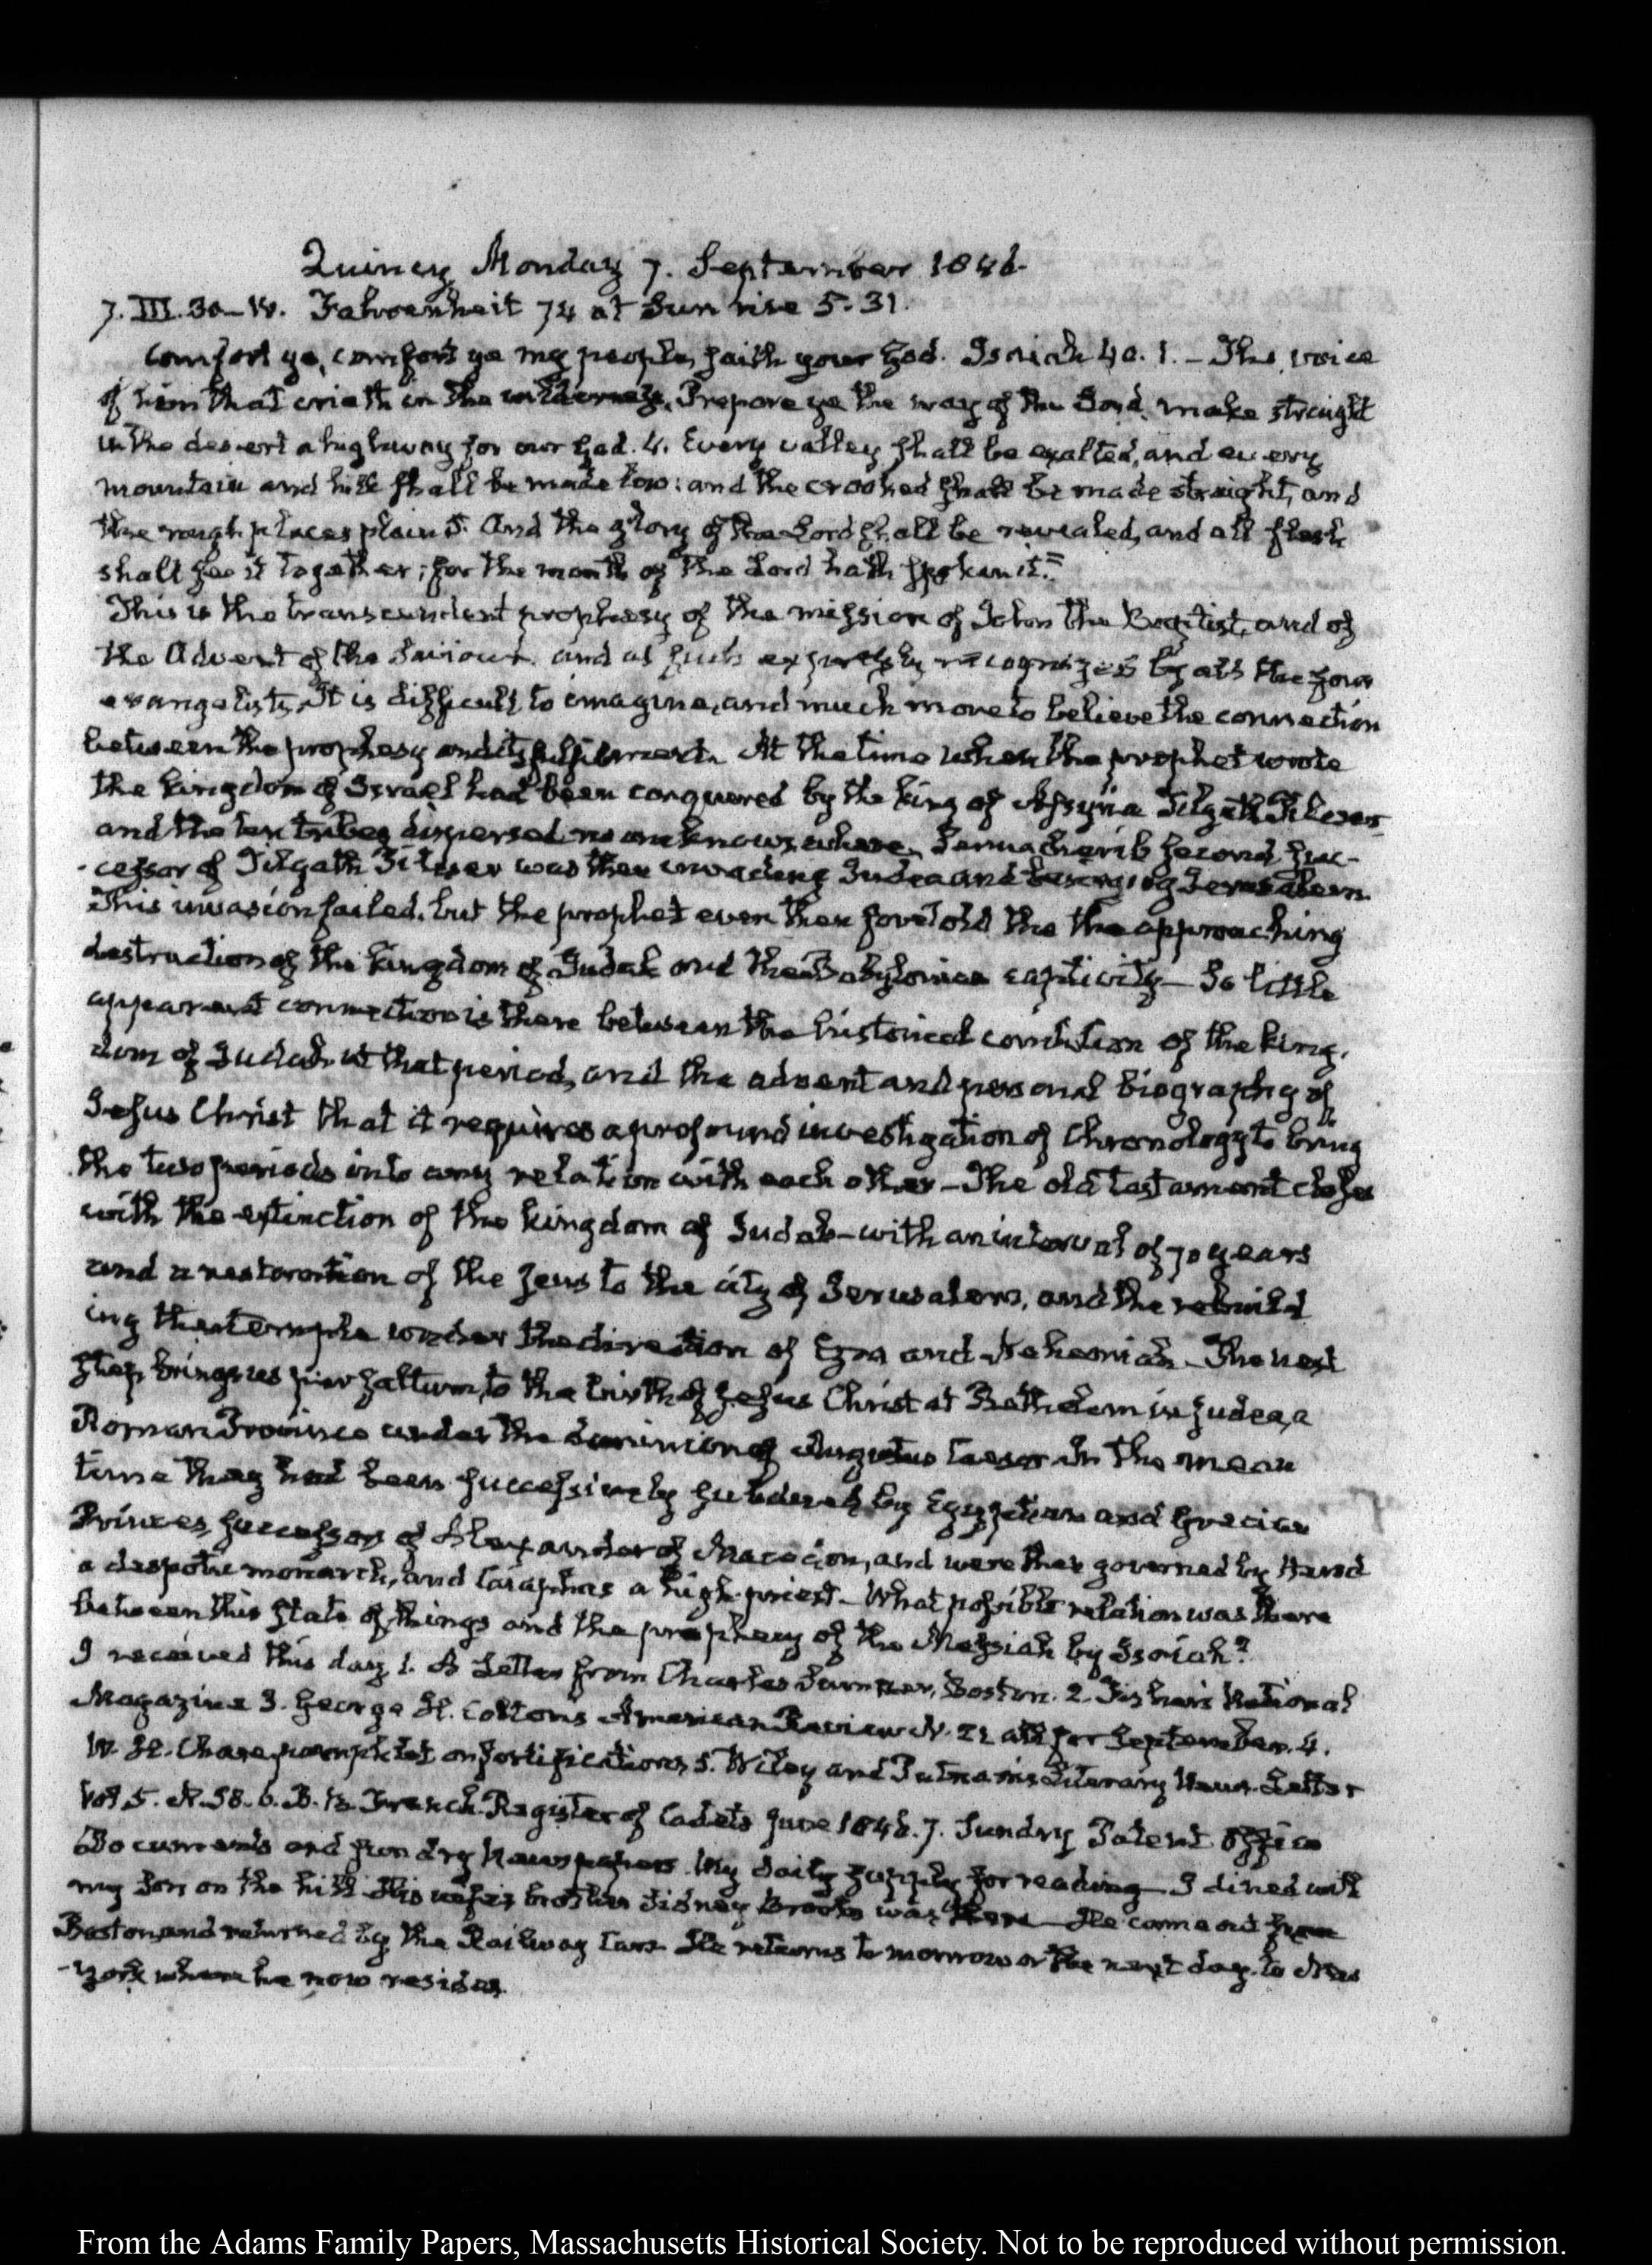 Quincy Monday 7. September 1846.
7. III.30–IV. Fahrenheit 74 at Sun rise 5.31.
Comfort ye, comfort ye my people, saith your God. Isaiah 40. 1. – The voice
of him that crieth in the wilderness, Prepare ye the way of the Lord. make straight
in the desert a highway for our God. 4. Every valley shall be exalted, and every
mountain and hill shall be made low: and the crooked shall be made straight, and
the rough places plain 5. And the glory of the Lord shall be revealed, and all flesh
shall see it together; for the mouth of the Lord hath spoken it."
This is the transcendent prophesy of the mission of John the Baptist, and of
the Advent of the Saviour. and as such expressly recognized by all the four
evangelists, It is difficult to imagine, and much more to believe the connection
between the prophesy and its fulfilment. At the time when the prophet wrote
the kingdom of Israel had been conquered by the king of Assyria Tilgath Pileser
and the ten tribes dispersed no one knows where. Sennacherib second suc-
-cessor of Tilgath Pileser was then invading Judea and besieging Jerusalem.
This invasion failed. but the prophet even then foretold the the approaching
destruction of the kingdom of Judah and the Babylonian captivity – So little
apparent connection is there between the historical condition of the king.
dom of Judah at that period, and the advent and personal biography of
Jesus Christ that it requires a profound investigation of Chronology to bring
the two periods into any relation with each other – The old testament closes
with the extinction of the kingdom of Judah – with an interval of 70 years
and a restoration of the Jews to the city of Jerusalem, and the rebuild
ing the temple under the direction of Ezra and Nehemiah – The next
step brings us per saltum, to the birth of Jesus Christ at Bethlehem in Judea, a
Roman Province under the dominion of Augustus Caesar In the mean
time they had been successively subdued by Egyptian and Grecian
Princes, successors of Alexander of Macedon, and were then governed by Herod
a despotic monarch, and Caiaphas a high-priest – What possible relation was there
between this state of things and the prophecy of the Messiah by Isaiah?
I received this day 1. A Letter from Charles Sumner, Boston. 2. Fisher's National
Magazine 3. George H. Colton's American Review N. 21 all for September. 4.
W. H. Chase pamphlet on fortifications 5. Wiley and Putnam's Literary News-Letter
Vol 5. N. 58. 6. B. B. French Register of Cadets June 1846. 7. Sundry Patent Office
Documents and sundry Newspapers. My daily supply for reading – I dined with
my Son on the hill His wife's brother Sidney Brooks was there – He came out from
Boston and returned by the Railway Cars He returns to morrow or the next day. to New
-York where he now resides.
From the Adams Family Papers, Massachusetts Historical Society. Not to be reproduced without permission.